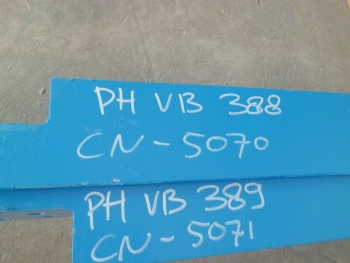 PH VB 388
CN-5070
PH VB 389
CN-5071